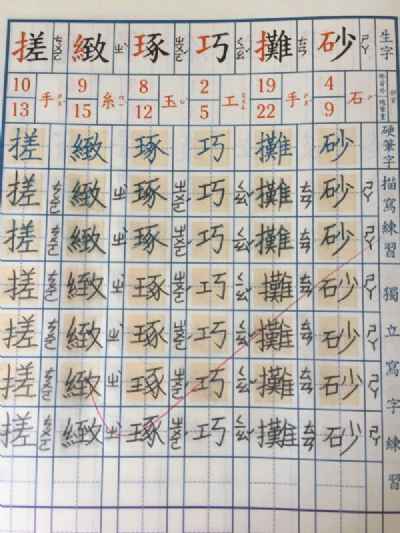 生字
硬筆字描寫練習
獨立寫字練習
砂 ㄕㄚ
4 9 石
砂
砂 ㄕㄚ
砂 ㄕㄚ
砂 ㄕㄚ
砂 ㄕㄚ
砂 ㄕㄚ
砂 ㄕㄚ
攤 ㄊㄢ
19 22 手
攤
攤 ㄊㄢ
攤 ㄊㄢ
攤 ㄊㄢ
攤 ㄊㄢ
攤 ㄊㄢ
攤 ㄊㄢ
巧 ㄑㄧㄠˇ
2 5 工
巧
巧 ㄑㄧㄠˇ
巧 ㄑㄧㄠˇ
巧 ㄑㄧㄠˇ
巧 ㄑㄧㄠˇ
巧 ㄑㄧㄠˇ
巧 ㄑㄧㄠˇ
琢 ㄓㄨㄛˊ
8 12 玉
琢
琢 ㄓㄨㄛˊ
琢 ㄓㄨㄛˊ
琢 ㄓㄨㄛˊ
琢 ㄓㄨㄛˊ
琢 ㄓㄨㄛˊ
琢 ㄓㄨㄛˊ
緻 ㄓˋ
9 15 糸
緻
緻 ㄓˋ
緻 ㄓˋ
緻 ㄓˋ
緻 ㄓˋ
緻 ㄓˋ
緻 ㄓˋ
搓 ㄘㄨㄛ
10 13 手
搓
搓 ㄘㄨㄛ
搓 ㄘㄨㄛ
搓 ㄘㄨㄛ
搓 ㄘㄨㄛ
搓 ㄘㄨㄛ
搓 ㄘㄨㄛ